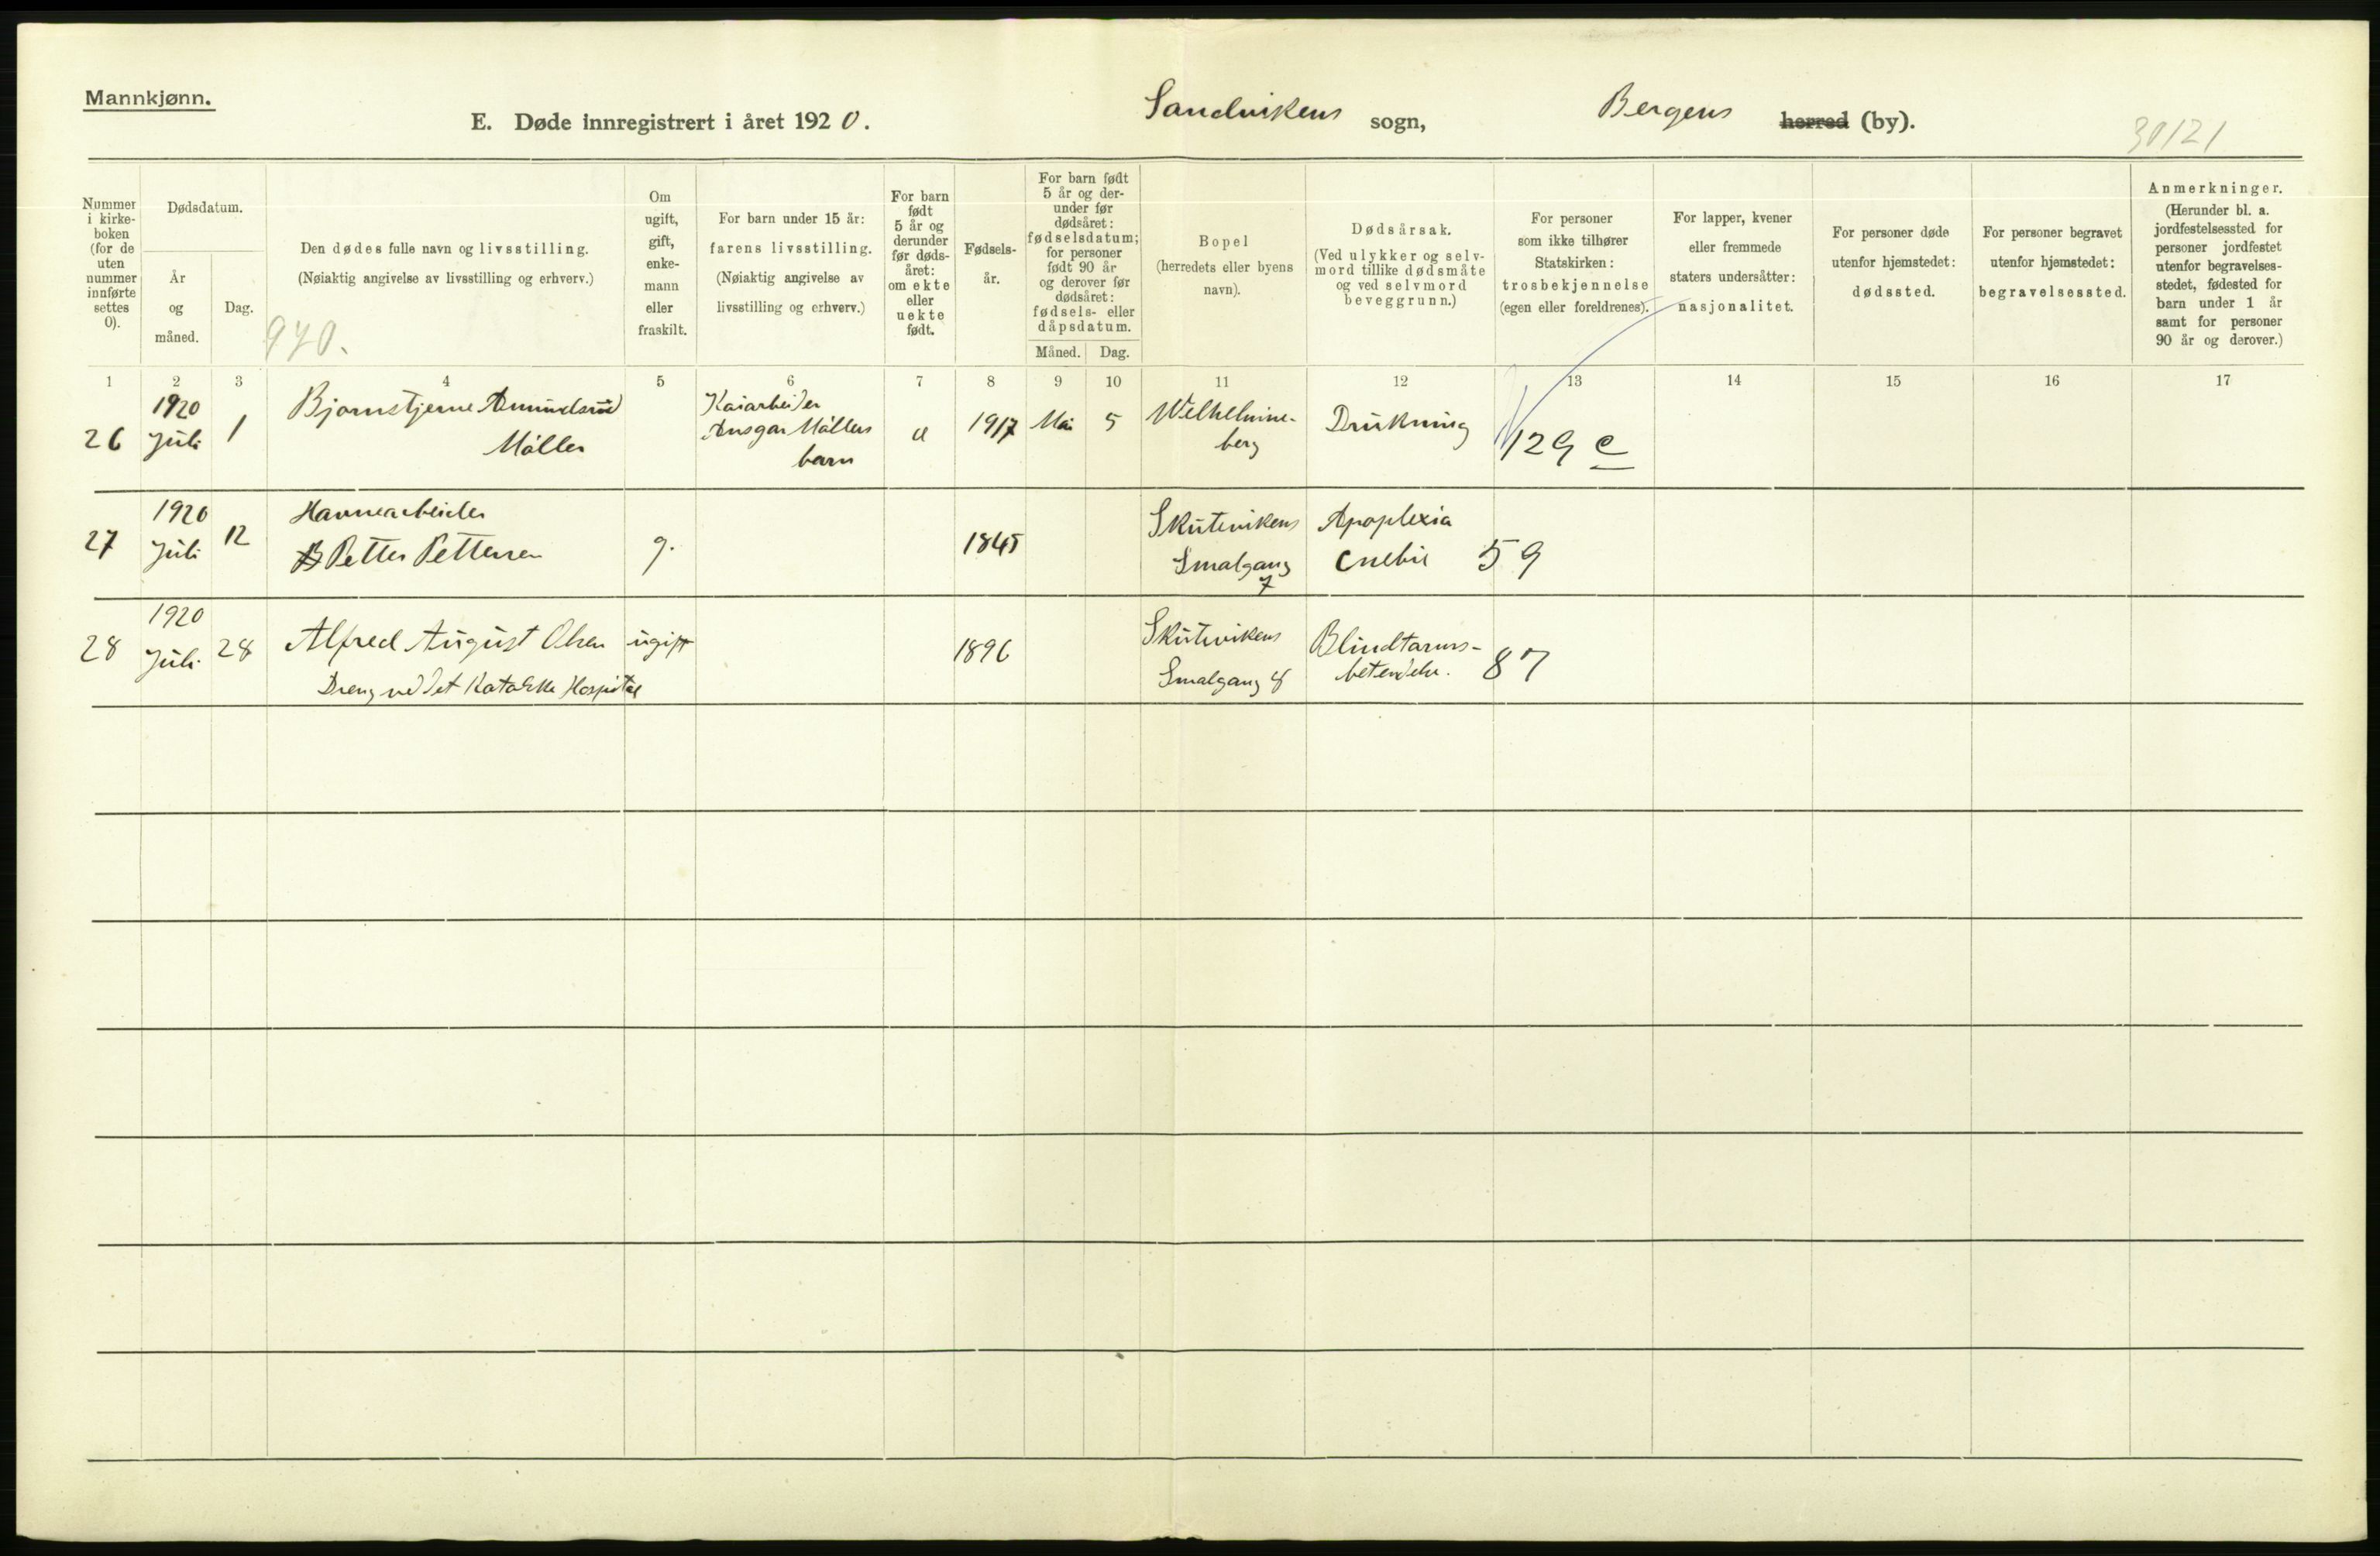 Mannkjønn.
E. Døde innregistrert i året 1920. Sandvikens sogn, Bergens herred (by).
30/21
Nummer i kirke-boken (for de uten nummer innførte settes 0).
Dødsdatum.
År og måned.
Dag.
Den dødes fulle navn og livsstilling.
(Nøiaktig angivelse av livsstilling og erhverv.)
970.
Om ugift, gift, enke-mann eller fraskilt.
For barn under 15 år:
farens livsstilling.
(Nøiaktig angivelse av
livsstilling og erhverv.)
For barn født 5 år og derunder før døds-året: om ekte eller uekte født.
Fødsels-år.
For barn født 5 år og der-under før dødsåret: fødselsdatum; for personer født 90 år og derover før dødsåret: fødsels- eller dåpsdatum.
Måned. Dag.
Bopel
(herredets eller byens
navn).
Dødsårsak.
(Ved ulykker og selv-
mord tillike dødsmåte
og ved selvmord
beveggrunn.)
For personer
som ikke tilhører
Statskirken:
trosbekjennelse
(egen eller foreldrenes).
For lapper, kvener
eller fremmede
staters undersåtter:
nasjonalitet.
For personer døde
utenfor hjemstedet:
dødssted.
For personer begravet
utenfor hjemstedet:
begravelsessted.
Anmerkninger.
(Herunder bl. a.
jordfestelsessted for
personer jordfestet
utenfor begravelses-
stedet, fødested for
barn under 1 år
samt for personer
90 år og derover.)
1 2 3 4 5 6 7 8 9 10 11 12 13 14 15 16 17
26 1920 Juli 1 Bjørnstjerne Amundsrud
Møller
Kaiarbeider
Ansgar Møllers
barn
u 1917 Mai 5 Wilhelmine-
berg
Drukning 129 e
27 1920 Juli 12 Havnearbeider
Petter Pettersen
g. 1845 Skutevikens
Smalgang
7
Apoplexia
cerebri 59
28 1920 Juli 28 Alfred August Olsen ugift
Dreng ved det Katolske Hospital
1896 Skutevikens
Smalgang 8
Blindtarms-
betendelse. 87